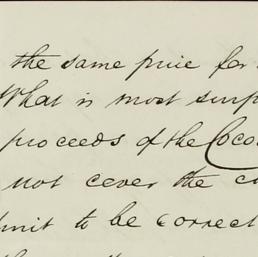 the same price for
What is most surp
proceeds of the Coco
not cover the c
mit to be correct